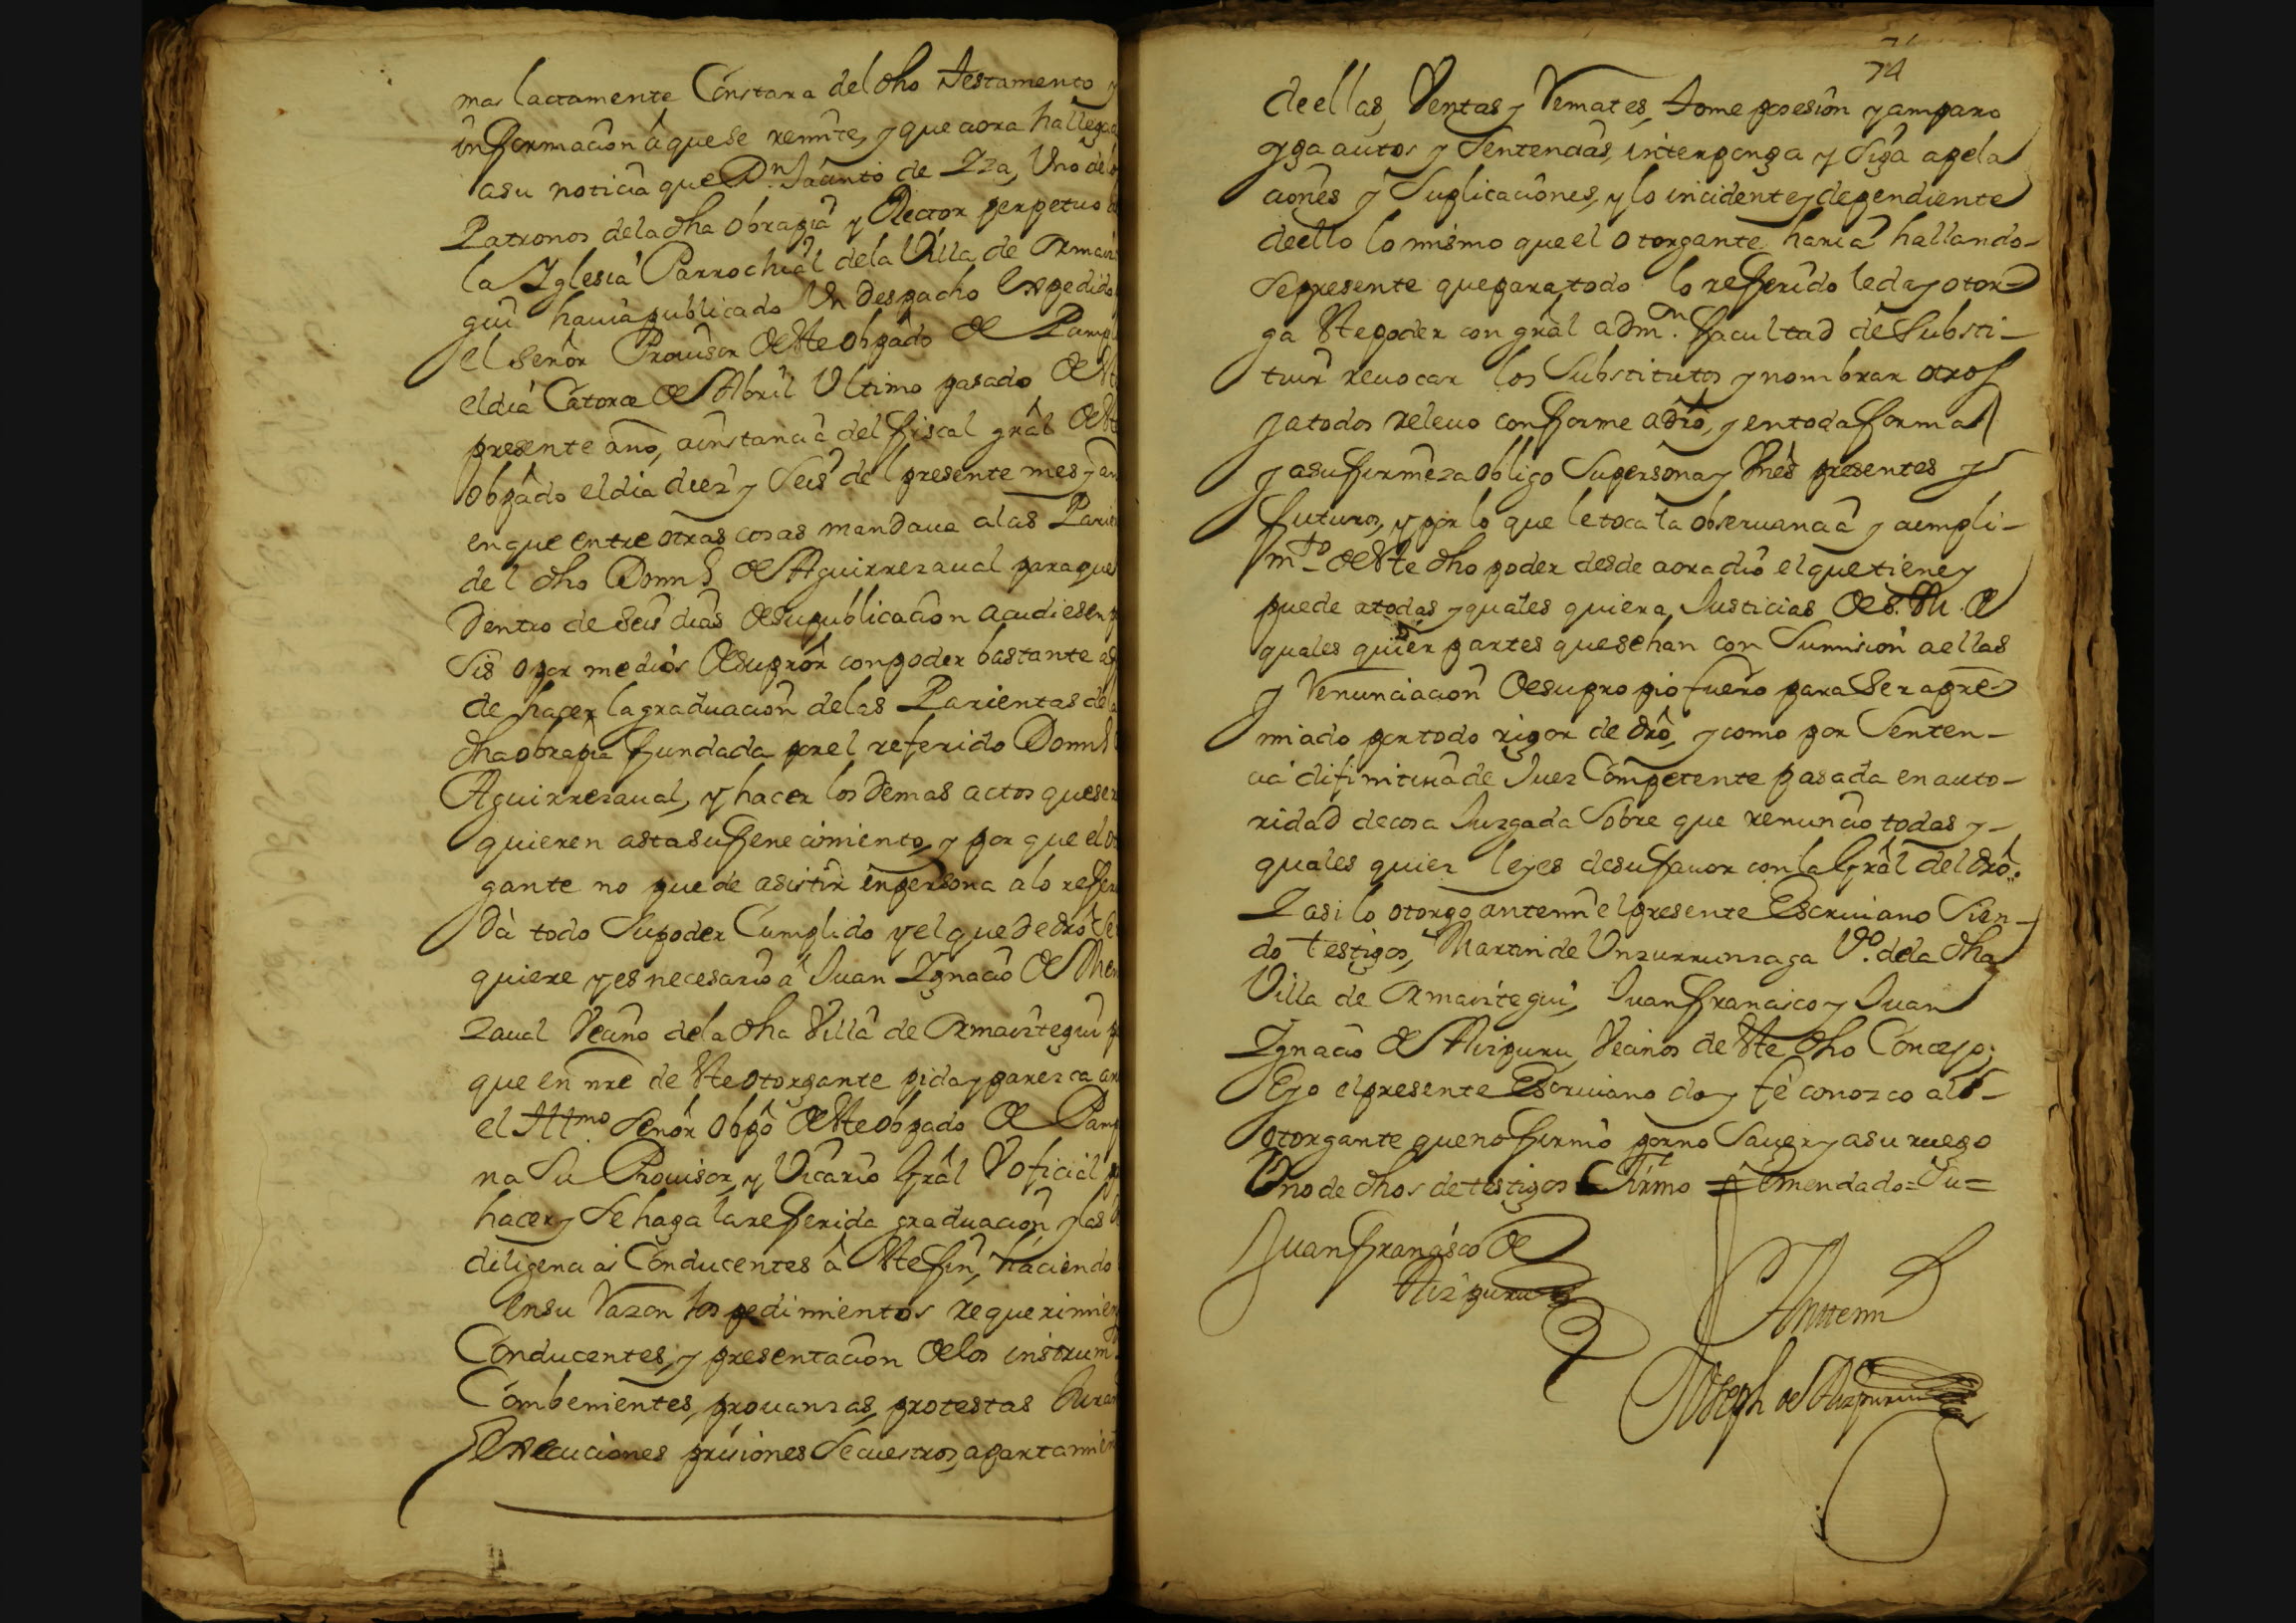 mas lactamente Constara del dho Testamento y
informacion â que se remite, y que aora ha llega
a su noticia que Dn. Jacinto de Iza, Uno de l
Patronos dela dha obrapia y Rector perpetuo
la Yglesia Parrochial dela Villa de Ormaiz
gui havia publicado Un Despacho Expedido
el Señor Provisor de este obpâdo de Pamp
el dia Catorce de Abril Ultimo pasado de
presente año, a instancia del fiscal grâl de
obpâdo el dia diez y Seis del presente mes y
en que entre otras cosas mandava a las Parie
del dho Domin. de Aguirrezaval para que
Dentro de seis dias de su publicacion acudiesen
sis o por medios de su prôr con poder bastante
de hacer la graduacion de las Parientas de
dha obrapia fundada por el referido Domin.
Aguirrezaval, y hacer los Demas actos que se
quieren asta su fenecimiento, y por que el
gante no puede asistir en persona a lo refer
Dà todo Supoder Cumplido y el que De drô
quiere y es necesario a Juan Ygnacio de Men
zaval Vecino dela dha Villa de Ormaiztegui
que en nre de este otorgante pida y parezca
el Illmo. Señor obpô de este obpado de Pamp
na Su Provisor, y Vicario Grâl V oficial
hacer y Se haga la referida graduacion y las
diligencias Conducentes â este fin, haciendo
en su razon los pedimientos requerimien
Conducentes, y presentacion de los instrum
Combenientes, provanzas, protestas
Execuciones prisiones Secuestros, apartamien
74
de ellas, Ventas y Remates, tome posesion y amparo
oyga autos y Sentencias, interponga y Siga apela
ciones y Suplicaciones, y lo incidente y dependiente
de ello lo mismo que el otorgante haria hallando-
se presente que para todo lo referido le da y otor=
ga este poder con grâl admn. facultad de Substi-
tuir revocar los Substitutos y nombrar otros
y a todos relevo conforme a drô, y en toda forma
y a su firmeza obligo Su persona y Vnês presentes y
futuros, y por lo que le toca la observancia y cumpli-
mto. de este dho poder desde aora dio el que tiene y
puede a todas y quales quiera Justicias de S. M. de
quales quier partes que sehan con Sumision a ellas
y Renunciacion de su propio fuero para Ser apre-
miado por todo rigor de drô, y como por Senten-
cia difinitiva de Juez Competente pasada en auto-
ridad de cosa Juzgada Sobre que renuncio todas y-
quales quier leyes de su favor con la Grâl del drô.
Y asi lo otorgo antemi el presente Escriviano Sien-
do testigos, Martin de Unzurrunzaga Vo. dela dha
Villa de Ormaiztegui, Juan francisco y Juan
Ygnacio de Aizpuru, Vecinos de este dho Concejo;
E yo el presente Escriviano doy fê conozco al-
otorgante que no firmò por no Saver y a su ruego
Uno de dhos de testigos firmo = Emendado = Su =
Juan Francisco de
Aizpuru
Antemi
Joseph de Aizpuru